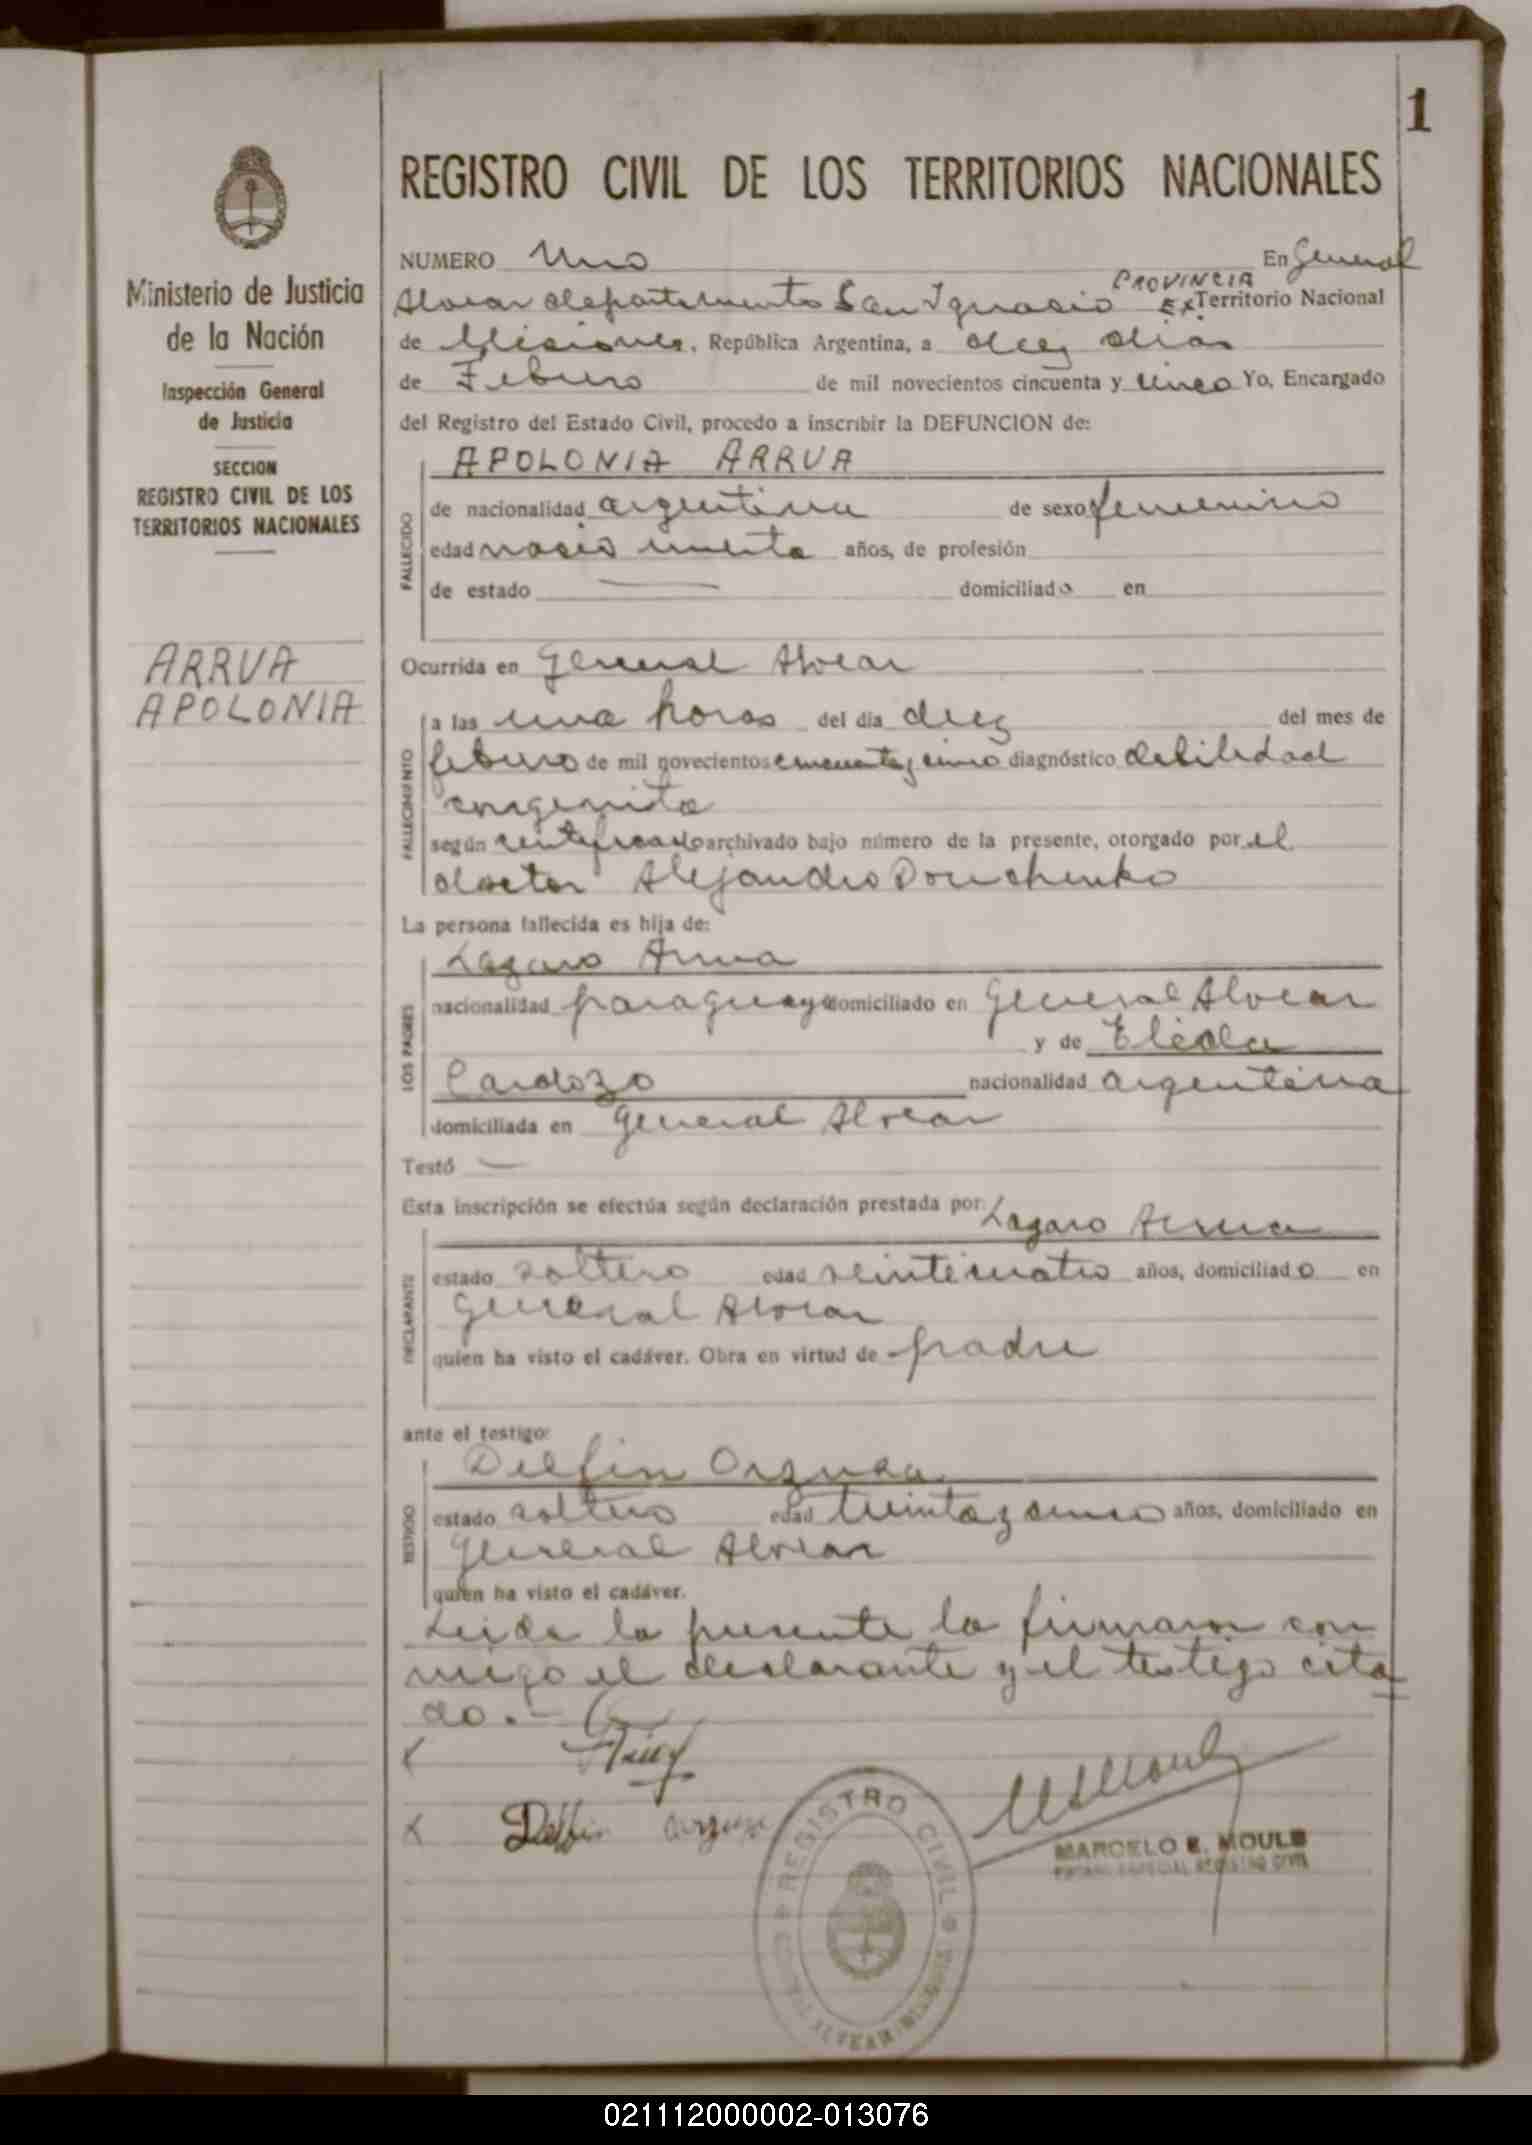 1
REGISTRO CIVIL DE LOS TERRITORIOS NACIONALES
Ministerio de Justicia
de la Nación
Inspección General
de Justicia
SECCION
REGISTRO CIVIL DE LOS
TERRITORIOS NACIONALES
ARRUA
APOLONIA
NUMERO Uno En General
Alvear departamento San Ignacio PROVINCIA Ex. Territorio Nacional
de Misiones, República Argentina, a diez dias
de Febrero de mil novecientos cincuenta y cinco Yo, Encargado
del Registro del Estado Civil, procedo a inscribir la DEFUNCION de:
APOLONIA ARRUA
FALLECIDO
de nacionalidad argentina de sexo femenino
edad nació muerta años, de profesión
de estado — domiciliado en
Ocurrida en General Alvear
FALLECIMIENTO
a las una horas del día diez del mes de
febrero de mil novecientos cincuenta y cinco diagnóstico debilidad
congenita
según certificado archivado bajo número de la presente, otorgado por el
doctor Alejandro Douchenko
La persona fallecida es hija de:
Lazaro Arrua
LOS PADRES
nacionalidad paraguaya domiciliado en General Alvear
y de Elida
Cardozo nacionalidad argentina
domiciliada en General Alvear
Testó —
Esta inscripción se efectúa según declaración prestada por: Lazaro Arrua
DECLARANTE
estado soltero edad veinticuatro años, domiciliado en
General Alvear
quien ha visto el cadáver. Obra en virtud de padre
ante el testigo:
Delfin Orzuza
TESTIGO
estado soltero edad treinta y cinco años, domiciliado en
General Alvear
quien ha visto el cadáver.
Leida la presente la firmaron con
migo el declarante y el testigo cita
do.-
Delfin
MARCELO E. MOULE
ESPECIAL REGISTRO CIVIL
REGISTRO CIVIL
ALVEAR MISIONES
021112000002-013076